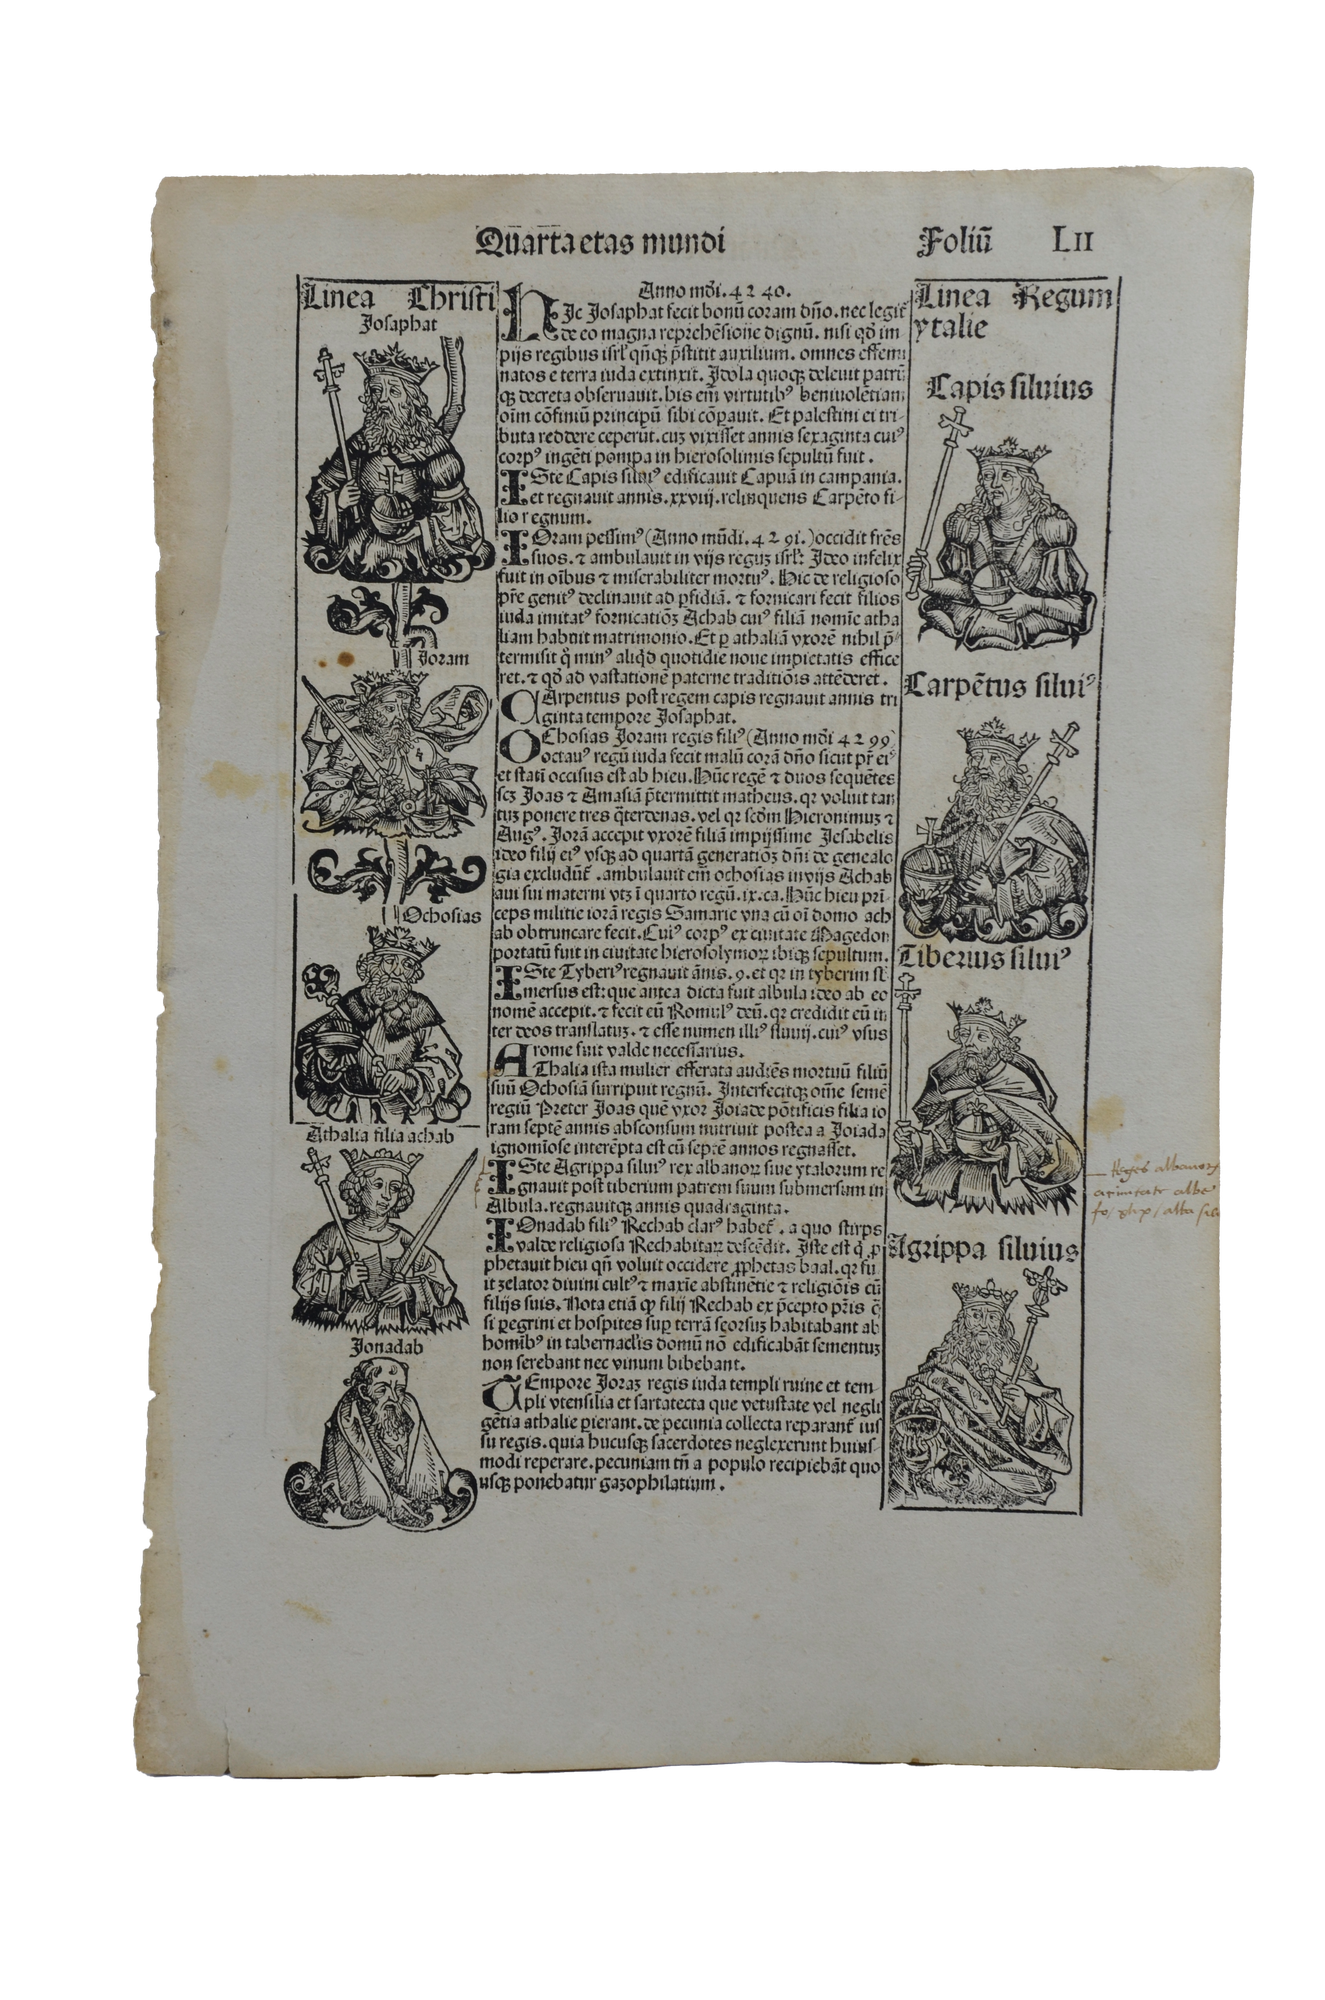 Quarta etas mundi
Foliũ LII
Linea Christi
Josaphat
Joram
Ochosias
Athalia filia achab
Jonadab
Anno mũdi. 4 2 40.
HJc Josaphat fecit bonũ coram dño. nec legit᷑
de eo magna reprehẽsione dignũ. nisi qđ im-
pijs regibus isrl̃ qñqꝫ p̃stitit auxilium. omnes effemi
natos e terra iuda extinxit. Jdola quoqꝫ deleuit patrũ
qꝫ decreta obseruauit. his em̃ virtutibꝰ beniuolẽtiam
oĩm cõfiniũ principũ sibi cõpauit. Et palestini ei tri-
buta reddere ceperũt. cuꝫ vixisset annis sexaginta cuiꝰ
corpꝰ ingẽti pompa in hierosolimis sepultũ fuit.
ISte Capis siluiꝰ edificauit Capuã in campania.
et regnauit annis. xxviij. relinquens Carpẽto fi-
lio regnum.
IOram pessimꝰ (Anno mũdi. 4 2 91.) occidit fr̃es
suos. ⁊ ambulauit in vijs reguꝫ isrl̃. Jdeo infelix
fuit in oĩbus ⁊ miserabiliter mortuꝰ. Hic de religioso
pr̃e genitꝰ declinauit ad ꝑfidiã. ⁊ fornicari fecit filios
iuda imitatꝰ fornicatiõꝫ Achab cuiꝰ filiã nomĩe atha
liam habuit matrimonio. Et ꝑ athaliã vxorẽ nihil p̃-
termisit q̃ minꝰ aliqđ quotidie noue impietatis effice
ret. ⁊ qđ ad vastationẽ paterne traditiõis attẽderet.
CArpentus post regem capis regnauit annis tri
ginta tempore Josaphat.
OChosias Joram regis filiꝰ (Anno mũdi 4 2 99)
octauꝰ regũ iuda fecit malũ corã dño sicut pr̃ eiꝰ
et statĩ occisus est ab hieu. Hũc regẽ ⁊ duos sequẽtes
scꝫ Joas ⁊ Amasiã p̃termittit matheus. qꝛ voluit tan
tuꝫ ponere tres q̃terdenas. vel qꝛ scđm Hieronimuꝫ ⁊
Augꝰ. Jorã accepit vxorẽ filiã impijssime Jesabelis
ideo filij eiꝰ vsqꝫ ad quartã generatiõꝫ dñi de genealo
gia excludũt᷑. ambulauit em̃ ochosias in vijs Achab
aui sui materni vtꝫ ĩ quarto regũ. ix. ca. Hũc hieu prĩ-
ceps militie iorã regis Samarie vna cũ oĩ domo ach
ab obtruncare fecit. Cuiꝰ corpꝰ ex ciuitate Magedon
portatũ fuit in ciuitate hierosolymoꝝ ibiqꝫ sepultum.
ISte Tyberiꝰ regnauit ãnis. 9. et qꝛ in tyberim sb̃
mersus est: que antea dicta fuit albula ideo ab eo
nomẽ accepit. ⁊ fecit eũ Romulꝰ deũ. qꝛ credidit eũ in
ter deos translatuꝫ. ⁊ esse numen illiꝰ fluuij. cuiꝰ vsus
rome fuit valde necessarius.
AThalia ista mulier efferata audiẽs mortuũ filiũ
suũ Ochosiã surripuit regnũ. Interfecitqꝫ om̃e semẽ
regiũ Preter Joas quẽ vxor Joiade põtificis filia io
ram septẽ annis absconsum nutriuit postea a Joiada
ignomiose interẽpta est cũ septẽ annos regnasset.
ISte Agrippa siluiꝰ rex albanoꝝ siue ytalorum re
gnauit post tiberium patrem suum submersum in
Albula. regnauitqꝫ annis quadraginta.
IOnadab filiꝰ Rechab clarꝰ habet᷑. a quo stirps
valde religiosa Rechabitaꝝ descẽdit. Iste est q̃ ꝓ
phetauit hieu qñ voluit occidere ꝓphetas baal. qꝛ fu
it zelator diuini cultꝰ ⁊ maxĩe abstinẽtie ⁊ religiõis cũ
filijs suis. Nota etiã qꝙ filij Rechab ex p̃cepto pr̃is q̃
si ꝑegrini et hospites suꝑ terrã seorsuꝫ habitabant ab
homĩbꝰ in tabernacl̃is domũ nõ edificabãt sementuꝫ
non serebant nec vinum bibebant.
TEmpore Joraꝫ regis iuda templi ruine et tem-
pli vtensilia et sartatecta que vetustate vel negli
gẽtia athalie ꝑierant. de pecunia collecta reparant᷑ ius
su regis. quia hucusqꝫ sacerdotes neglexerunt huius-
modi reperare. pecuniam tñ a populo recipiebãt quo
usqꝫ ponebatur gazophilatium.
Linea Regum
ytalie
Capis siluius
Carpẽtus siluiꝰ
Tiberius siluiꝰ
Agrippa siluius
Reges albanoꝝ
a ciuitate albe